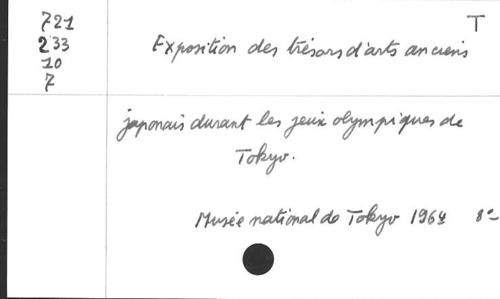 721
T
233
Exposition des trésors d'arts anciens
10
7
japonais durant les jeux olympiques de
Tokyo.
Musée national de Tokyo 1964 8°